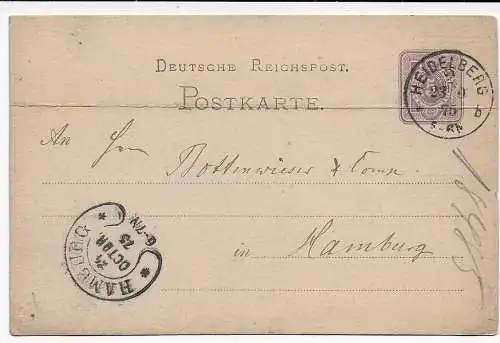 DEUTSCHE REICHSPOST.
POSTKARTE.
HEIDELBERG
23 10
75
5-6N b
An Herrn Bottenwieser & Comp.
in Hamburg
HAMBURG
24
OCTBR
75
6-7N.